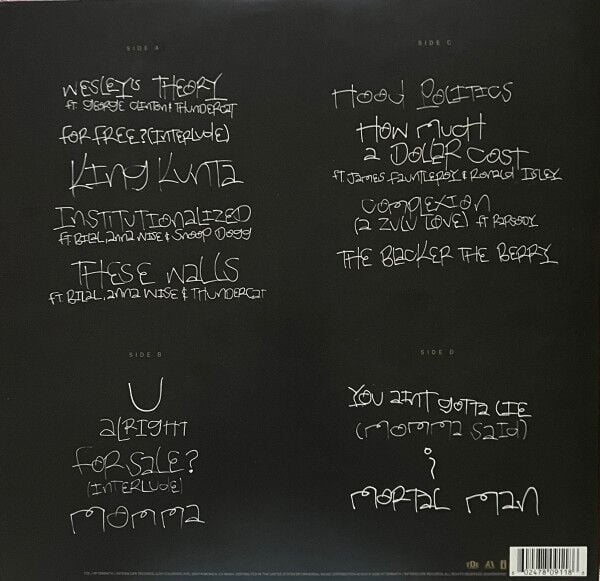 SIDE A
WESLEY'S THEORY
ft GEORGE CLINTON & THUNDERCAT
FOR FREE? (INTERLUDE)
KING KUNTA
INSTITUTIONALIZED
ft BILAL, anna WISE & SNOOP DOGG
THESE WALLS
ft BILAL, anna WISE & THUNDERCAT
SIDE B
U
ALRIGHT
FOR SALE?
(INTERLUDE)
MOMMA
SIDE C
HOOD POLITICS
HOW MUCH
a DOLLAR COST
ft. JAMES FAUNTLEROY & RONALD ISLEY
COMPLEXION
(a ZULU LOVE) ft RAPSODY
THE BLACKER THE BERRY
SIDE D
YOU AINT GOTTA LIE
(MOMMA SAID)
i
MORTAL MAN
6 02478 09118 6